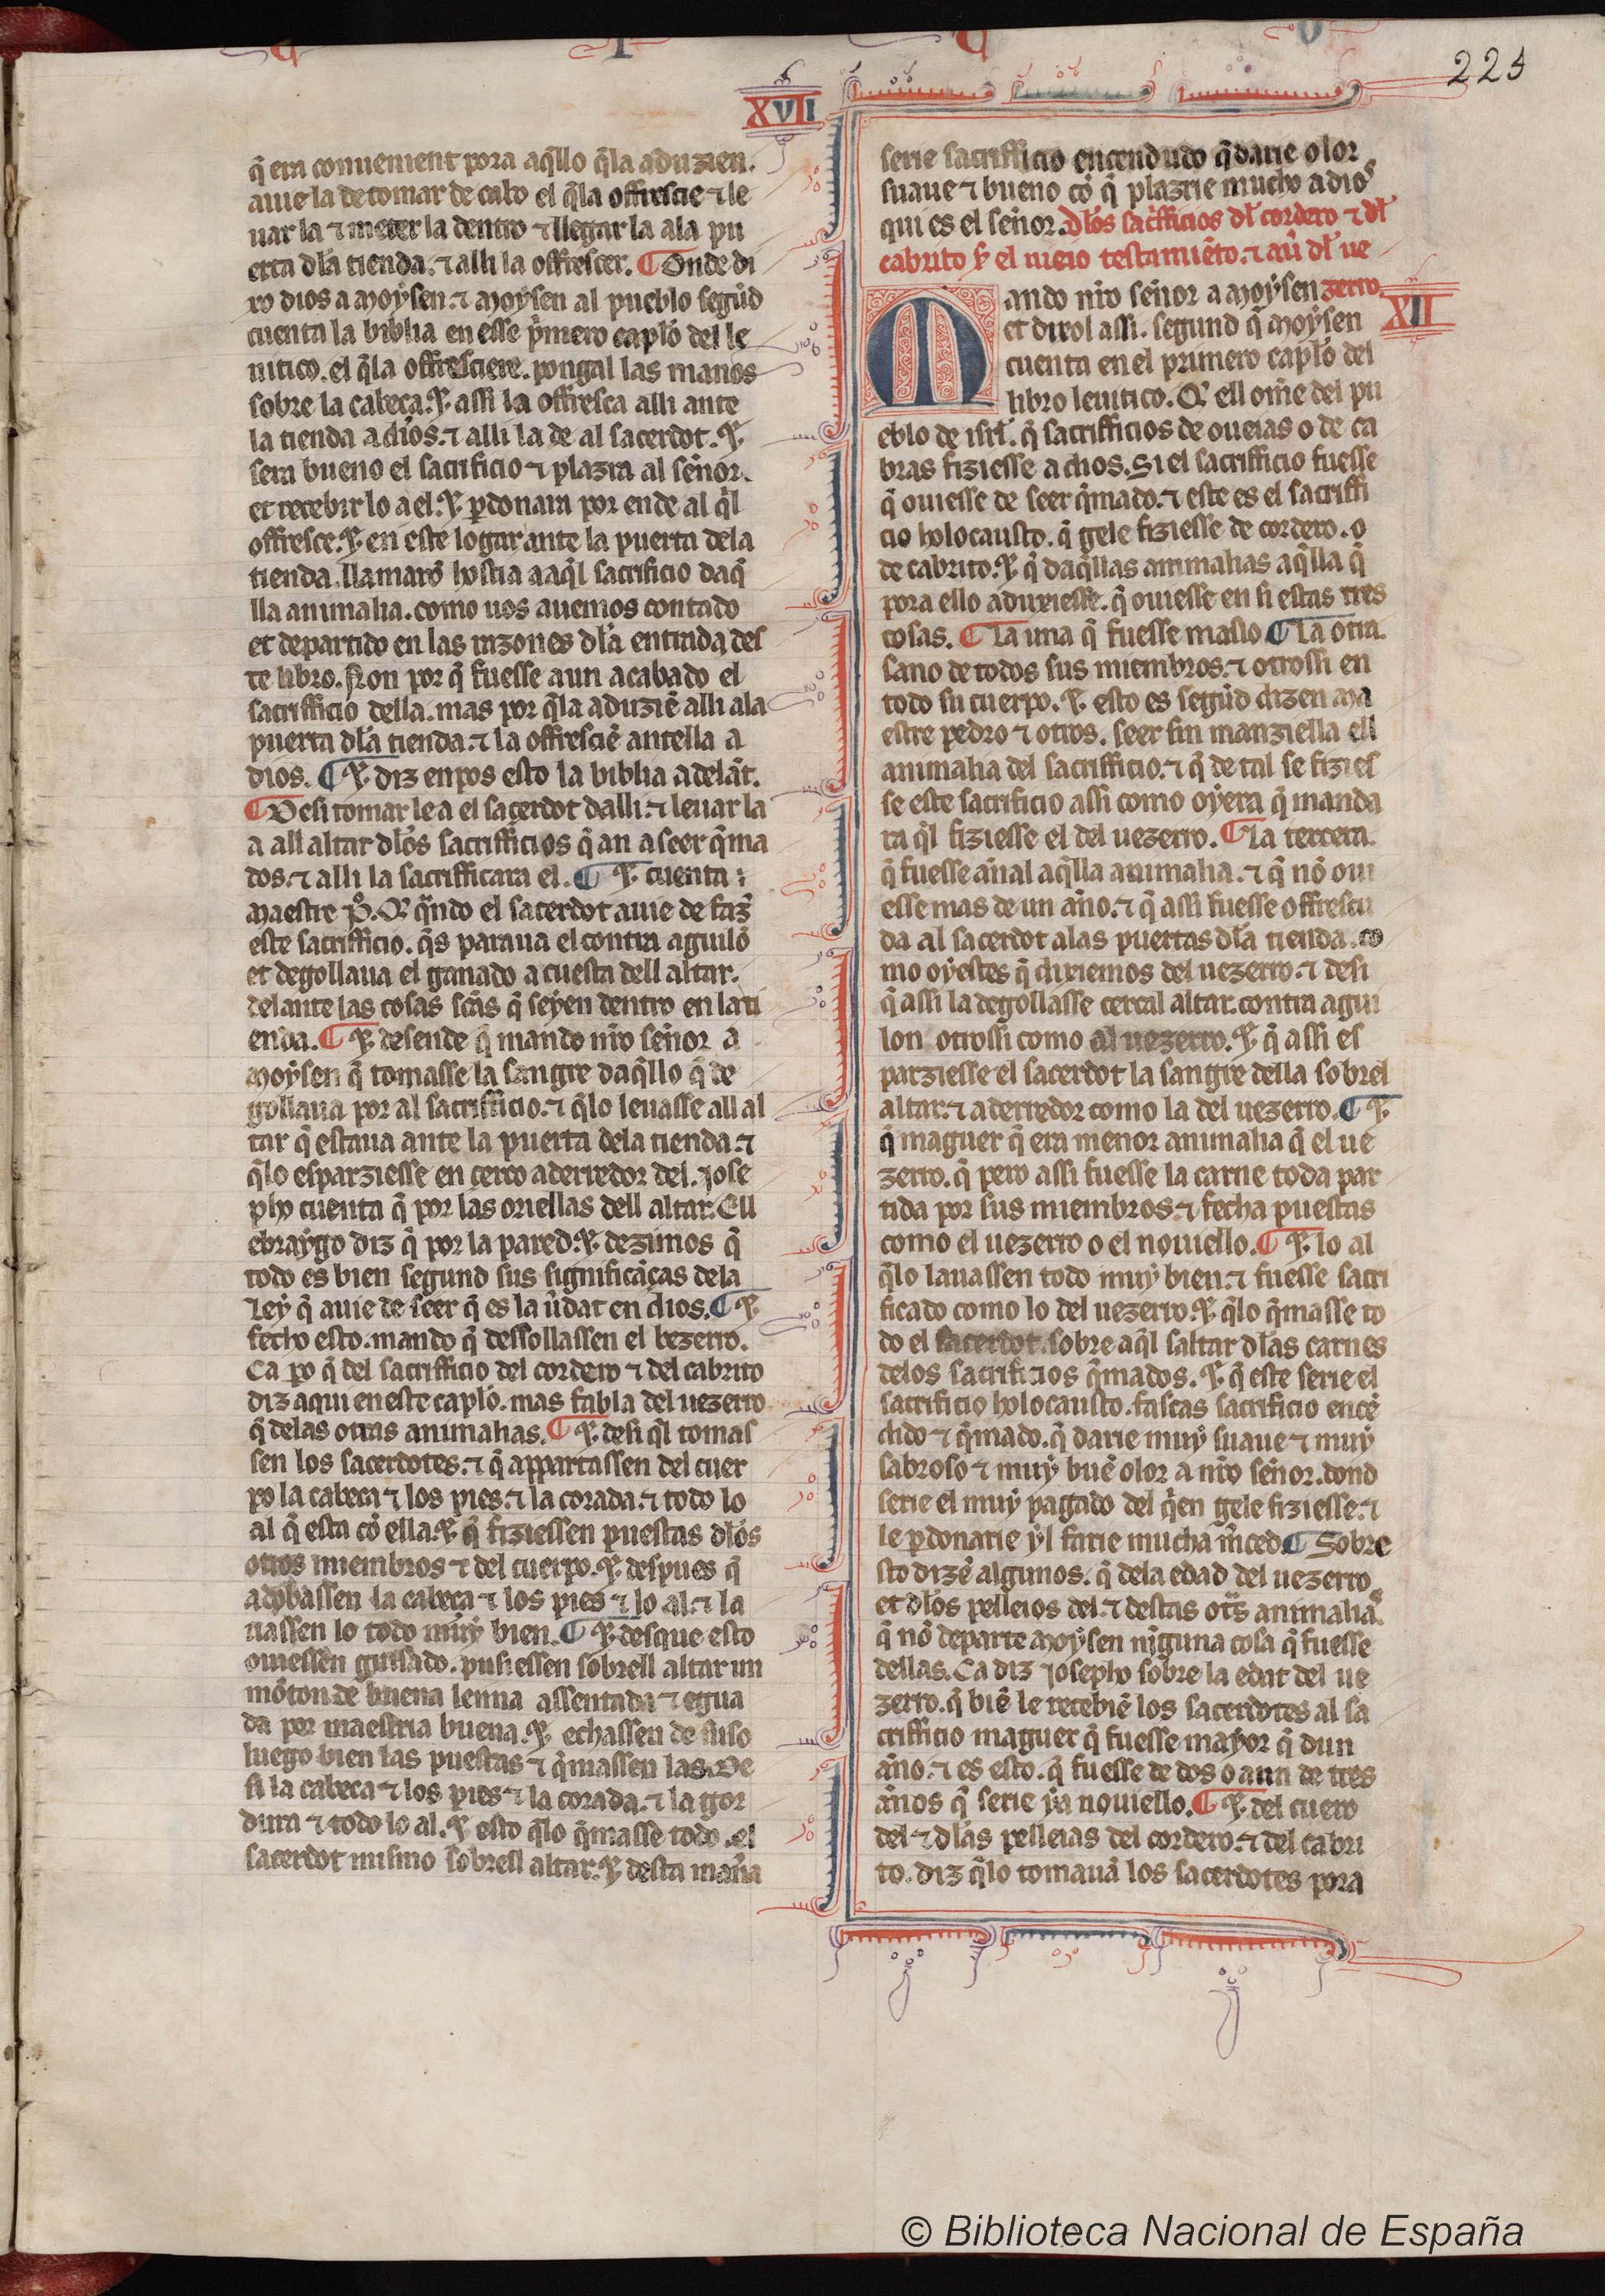 225
XVII
q̃ era conuenient pora aq̃llo q̃la aduzien.
auie la de tomar de cabo el q̃la offrescie ⁊ le
uar la ⁊ meter la dentro ⁊ llegar la ala pu
erta dl̃a tienda. ⁊ alli la offrescer. ¶ Onde di
xo dios a moysen. ⁊ moysen al pueblo segũd
cuenta la biblia en esse p̃mero caplo del le
uitico. el q̃la offresciere. pongal las manos
sobre la cabeça. ⁊ assi la offresca alli ante
la tienda a dios. ⁊ alli la de al sacerdot. ⁊
sera bueno el sacrificio ⁊ plazra al señor.
et recebir lo a el. ⁊ ꝑdonara por ende al q̃l
offresce. ⁊ en este logar ante la puerta dela
tienda. llamarõ hostia a aq̃l sacrificio daq̃
lla animalia. como uos auemos contado
et departido en las razones dl̃a entrada des
te libro. Non por q̃ fuesse aun acabado el
sacrifficio della. mas por q̃la aduziẽ alli ala
puerta dl̃a tienda. ⁊ la offresciẽ antella a
dios. ¶ ⁊ diz enpos esto la biblia adelãt.
¶ Desi tomar le a el sacerdot dalli. ⁊ leuar la
a all altar dl̃os sacrifficios q̃ an a seer q̃ma
dos. ⁊ alli la sacrifficara el. ¶ ⁊ cuenta
maestre p̃o. Q̃ q̃ndo el sacerdot auie de faz̃
este sacrifficio. q̃s paraua el contra aguilõ
et degollaua el ganado a cuesta dell altar.
delante las cosas sc̃as q̃ seyen dentro en la ti
enda. ¶ ⁊ desende q̃ mando nr̃o señor a
moysen q̃ tomasse la sangre daq̃llo q̃ de
gollaua por al sacrifficio. ⁊ q̃lo leuasse all al
tar q̃ estaua ante la puerta dela tienda. ⁊
q̃lo esparziesse en cerco aderredor del. Jose
pho cuenta q̃ por las oriellas dell altar. Ell
ebraygo diz q̃ por la pared. ⁊ dezimos q̃
todo es bien segund sus significãças dela
ley q̃ auie de seer q̃ es la ũdat en dios. ¶ ⁊
fecho esto. mando q̃ dessollassen el bezerro.
Ca ꝑo q̃ del sacrifficio del cordero ⁊ del cabrito
diz aqui en este caplo. mas fabla del uezerro
q̃ delas otras animalias. ¶ ⁊ desi q̃l tomas
sen los sacerdotes. ⁊ q̃ appartassen del cuer
po la cabeça ⁊ los pies. ⁊ la corada. ⁊ todo lo
al q̃ esta cõ ella. ⁊ q̃ fiziessen puestas dl̃os
otros miembros ⁊ del cuerpo. ⁊ despues q̃
adobassen la cabeça ⁊ los pies ⁊ lo al. ⁊ la
uassen lo todo muy bien. ¶ ⁊ desque esto
ouiessen guisado. pusiessen sobrell altar un
mõton de buena lenna assentada ⁊ egua
da por maestria buena. ⁊ echassen de suso
luego bien las puestas ⁊ q̃massen las. De
si la cabeça ⁊ los pies ⁊ la corada. ⁊ la gor
dura ⁊ todo lo al. ⁊ esto q̃lo q̃masse todo. el
sacerdot mismo sobrell altar. ⁊ desta mañra
serie sacrifficio encendudo q̃ darie olor
suaue ⁊ bueno cõ q̃ plazrie mucho a dios
qui es el señor. Dl̃os sac̃fficios dl̃ cordero ⁊ dl̃
cabrito ẽ el uieio testamiẽto. ⁊ aũ dl̃ ue
zerro
XII
Mando nr̃o señor a moysen
et dixol assi. segund q̃ moysen
cuenta en el primero caplo del
libro leuitico. Q̃ ell om̃e del pu
eblo de isrl̃. q̃ sacrifficios de oueias o de ca
bras fiziesse a dios. Si el sacrifficio fuesse
q̃ ouiesse de seer q̃mado. ⁊ este es el sacriffi
cio holocausto. q̃ gele fiziesse de cordero. o
de cabrito. ⁊ q̃ daq̃llas animalias aq̃lla q̃
pora ello aduxiesse. q̃ ouiesse en si estas tres
cosas. ¶ La una q̃ fuesse maslo ¶ La otra.
sano de todos sus miembros. ⁊ otrossi en
todo su cuerpo. ⁊ esto es segũd dizen ma
estre pedro ⁊ otros. seer sin manziella ell
animalia del sacrifficio. ⁊ q̃ de tal se fizies
se este sacrificio assi como oyera q̃ manda
ra q̃l fiziesse el del uezerro. ¶ La tercera.
q̃ fuesse añal aq̃lla animalia. ⁊ q̃ nõ oui
esse mas de un año. ⁊ q̃ assi fuesse offresçu
da al sacerdot alas puertas dl̃a tienda. co
mo oyestes q̃ dixiemos del uezerro. ⁊ desi
q̃ assi la degollasse cercal altar. contra agui
lon otrossi como al uezerro. ⁊ q̃ assi es
parziesse el sacerdot la sangre della sobrel
altar. ⁊ aderredor como la del uezerro. ¶ ⁊
q̃ maguer q̃ era menor animalia q̃ el ue
zerro. q̃ pero assi fuesse la carne toda par
tida por sus miembros. ⁊ fecha puestas
como el uezerro o el nouiello. ¶ ⁊ lo al
q̃lo lauassen todo muy bien. ⁊ fuesse sacri
ficado como lo del uezerro. ⁊ q̃lo q̃masse to
do el sacerdot. sobre aq̃l saltar dl̃as carnes
delos sacrificios q̃mados. ⁊ q̃ este serie el
sacrificio holocausto. fascas sacrificio encẽ
dido ⁊ q̃mado. q̃ darie muy suaue ⁊ muy
sabroso ⁊ muy buẽ olor a nr̃o señor. dond
serie el muy pagado del q̃en gele fiziesse. ⁊
le ꝑdonarie yl farie mucha m̃ced. ¶ Sobre
sto dizẽ algunos. q̃ dela edad del uezerro
et dl̃os pelleios del. ⁊ destas ot̃s animalias
q̃ nõ departe moysen nĩguna cosa q̃ fuesse
dellas. Ca diz Josepho sobre la edat del ue
zerro. q̃ biẽ le recebiẽ los sacerdotes al sa
crifficio maguer q̃ fuesse mayor q̃ dun
año. ⁊ es esto. q̃ fuesse de dos o aun de tres
años q̃ serie ya nouiello. ¶ ⁊ del cuero
del ⁊ dl̃as pelleias del cordero. ⁊ del cabri
to. diz q̃lo tomauã los sacerdotes pora
© Biblioteca Nacional de España